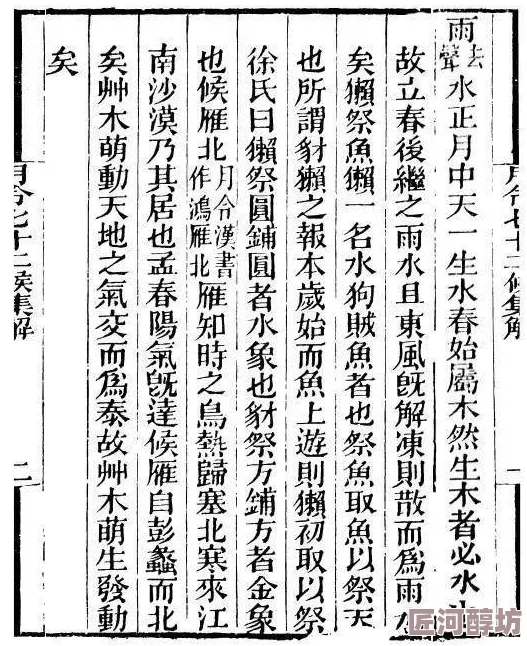 月令七十二候集解 一
雨去聲水正月中天一生水春始屬木然生木者必水也
故立春後繼之雨水且東風旣解凍則散而爲雨水
矣獺祭魚獺一名水狗賊魚者也祭魚取魚以祭天
也所謂豺獺之報本歲始而魚上遊則獺初取以祭
徐氏曰獺祭圓鋪圓者水象也豺祭方鋪方者金象
也候雁北月令漢書作鴻雁北雁知時之鳥熱歸塞北寒來江
南沙漠乃其居也孟春陽氣旣達候雁自彭蠡而北
矣艸木萌動天地之氣交而爲泰故艸木萌生發動
矣
月令七十二候集解 二
匠河醇坊